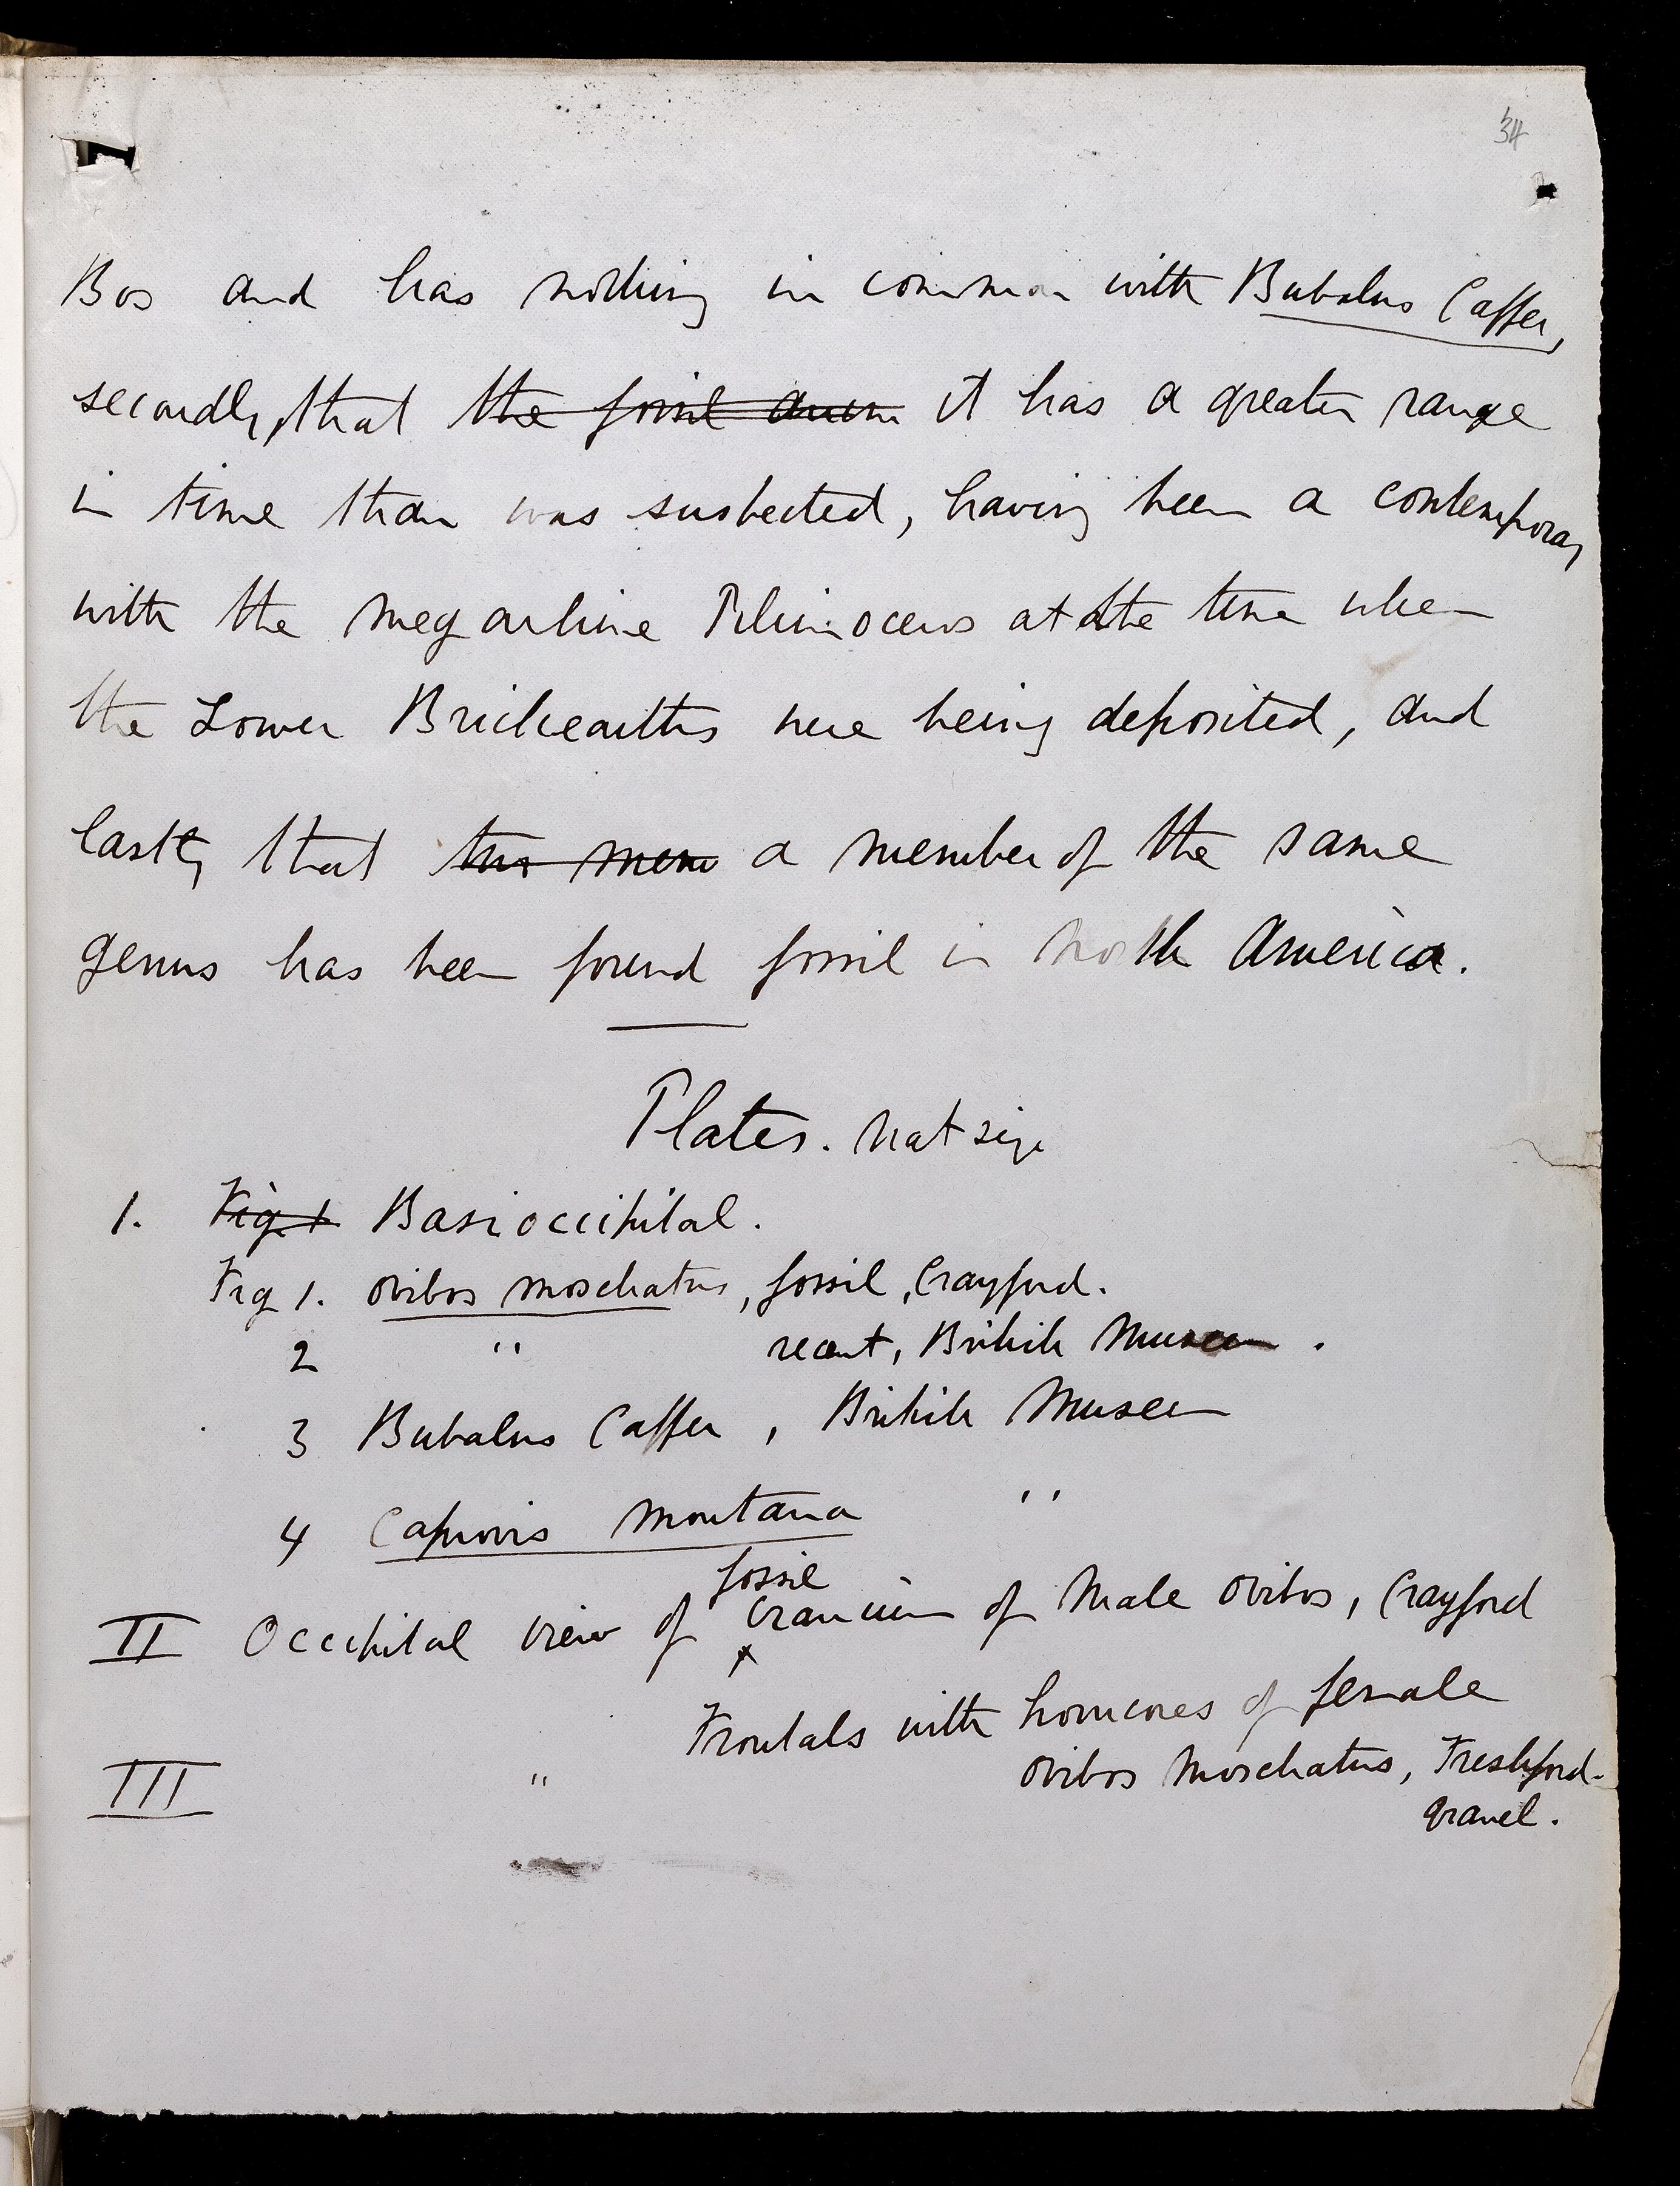 34
Bos and has nothing in common with Bubalus Caffer,
secondly, that the fossil it has a greater range
in time than was suspected, having been a contemporary
with the megarhine Rhinoceros at the time when
the Lower Brickearths were being deposited, and
lastly that a member of the same
genus has been found fossil in North America.
Plates. Nat size
1. Fig. 1 Basioccipital.
Fig 1. Ovibos moschatus, fossil, Crayford.
2 " recent, British Museum.
3 Bubalus Caffer, British Museum
4 Capriovis montana "
fossil
II Occipital view of cranium of male Ovibos, Crayford
Frontals with horncores of female
III " Ovibos moschatus, Freshford
gravel.